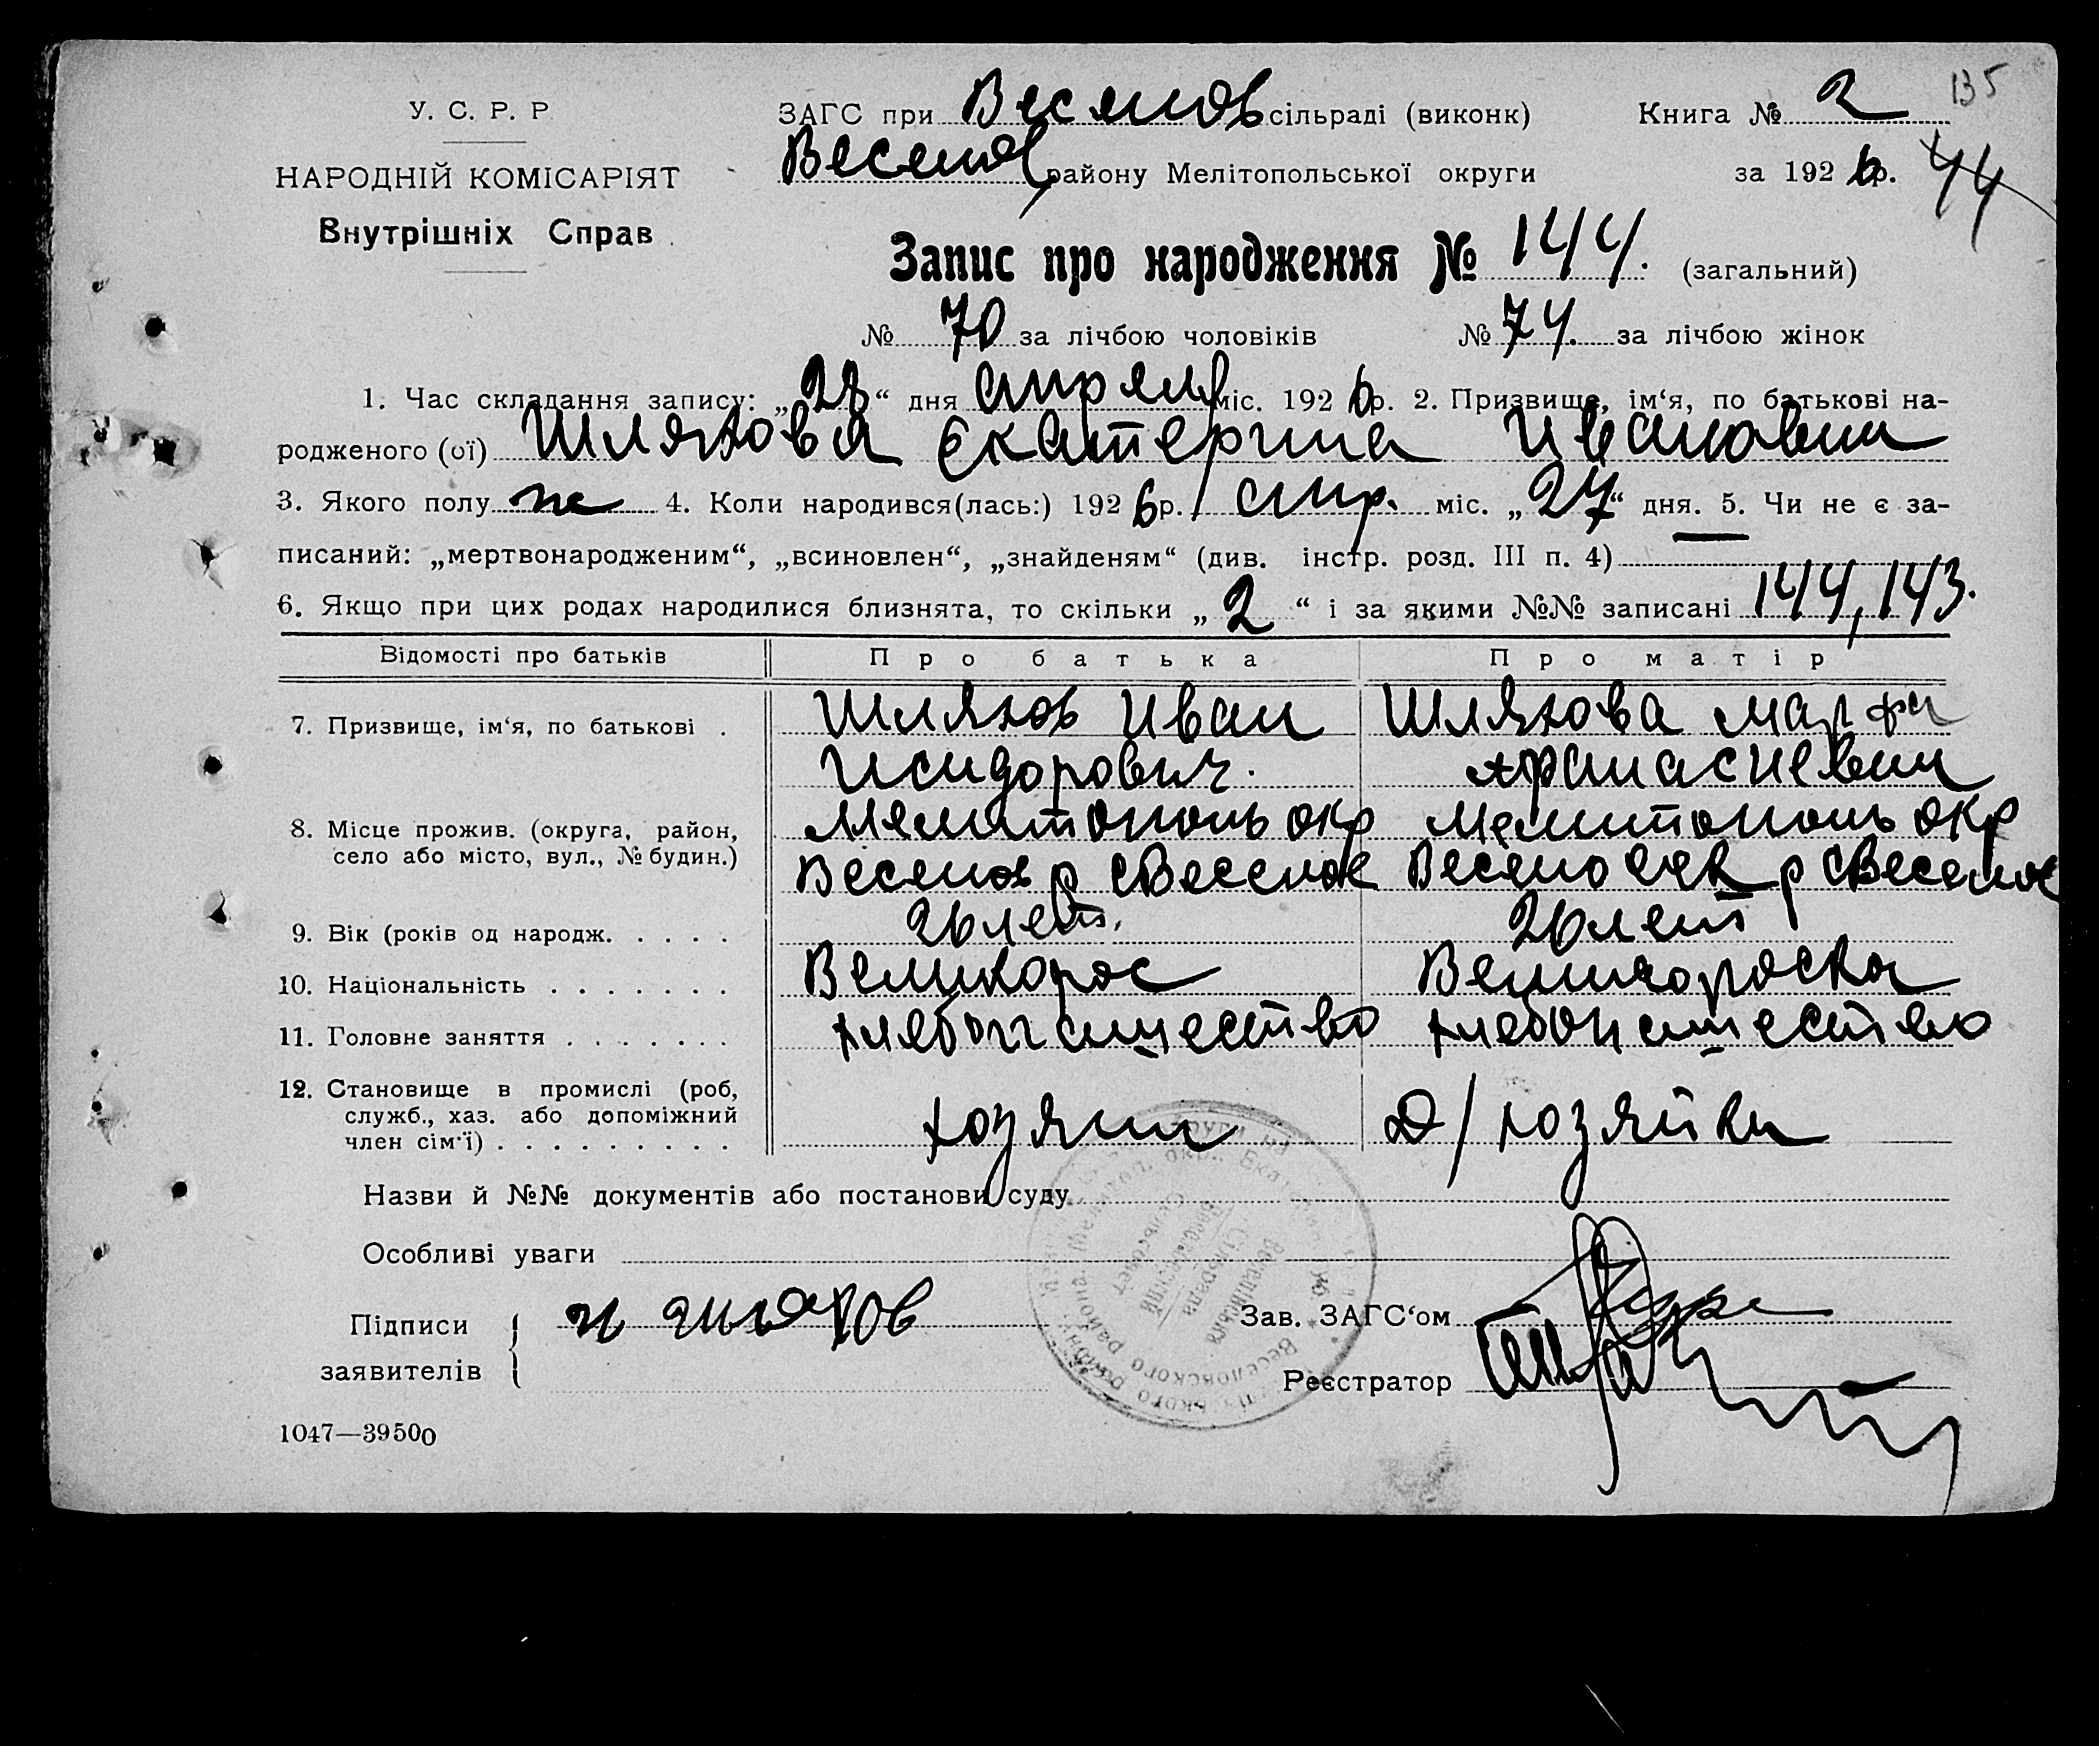 135
У. С. Р. Р
ЗАГС при Веселов сільраді (виконк) Книга № 2
НАРОДНІЙ КОМІСАРІЯТ Веселов району Мелітопольської округи за 1926 р. 44
Внутрішніх Справ
Запис про народження № 144. (загальний)
№ 70 за лічбою чоловіків № 74. за лічбою жінок
1. Час складання запису: „28“ дня апреля міс. 1926 р. 2. Призвище, ім‘я, по батькові на-
родженого (ої) Шляхова Екатерина Ивановна
3. Якого полу ж 4. Коли народився(лась:) 1926 р. апр. міс. „27“ дня. 5. Чи не є за-
писаний: „мертвонародженим“, „всиновлен“, „знайденям“ (див. інстр. розд. III п. 4) —
6. Якщо при цих родах народилися близнята, то скільки „2“ і за якими №№ записані 144, 143.
Відомості про батьків Про батька Про матір
7. Призвище, ім‘я, по батькові . Шляхов Иван Шляхова Марфа
Исидорович. Афанасиевна
8. Місце прожив. (округа, район, Мелитополь окр Мелитополь окр
село або місто, вул., № будин.) Веселов р с Веселое р с Веселое
9. Вік (років од народж. . . . . 26 лет. 26 лет
10. Національність . . . . . . . Великорос Великороска
11. Головне заняття . . . . . . . хлебопашество хлебопашество
12. Становище в промислі (роб,
служб., хаз. або допоміжний хозяин Д/хозяйка
член сім‘ї) . . . . . . . . .
Назви й №№ документів або постанови суду
Особливі уваги
Підписи и шляхов Зав. ЗАГС‘ом
заявителів Реєстратор
1047—39500